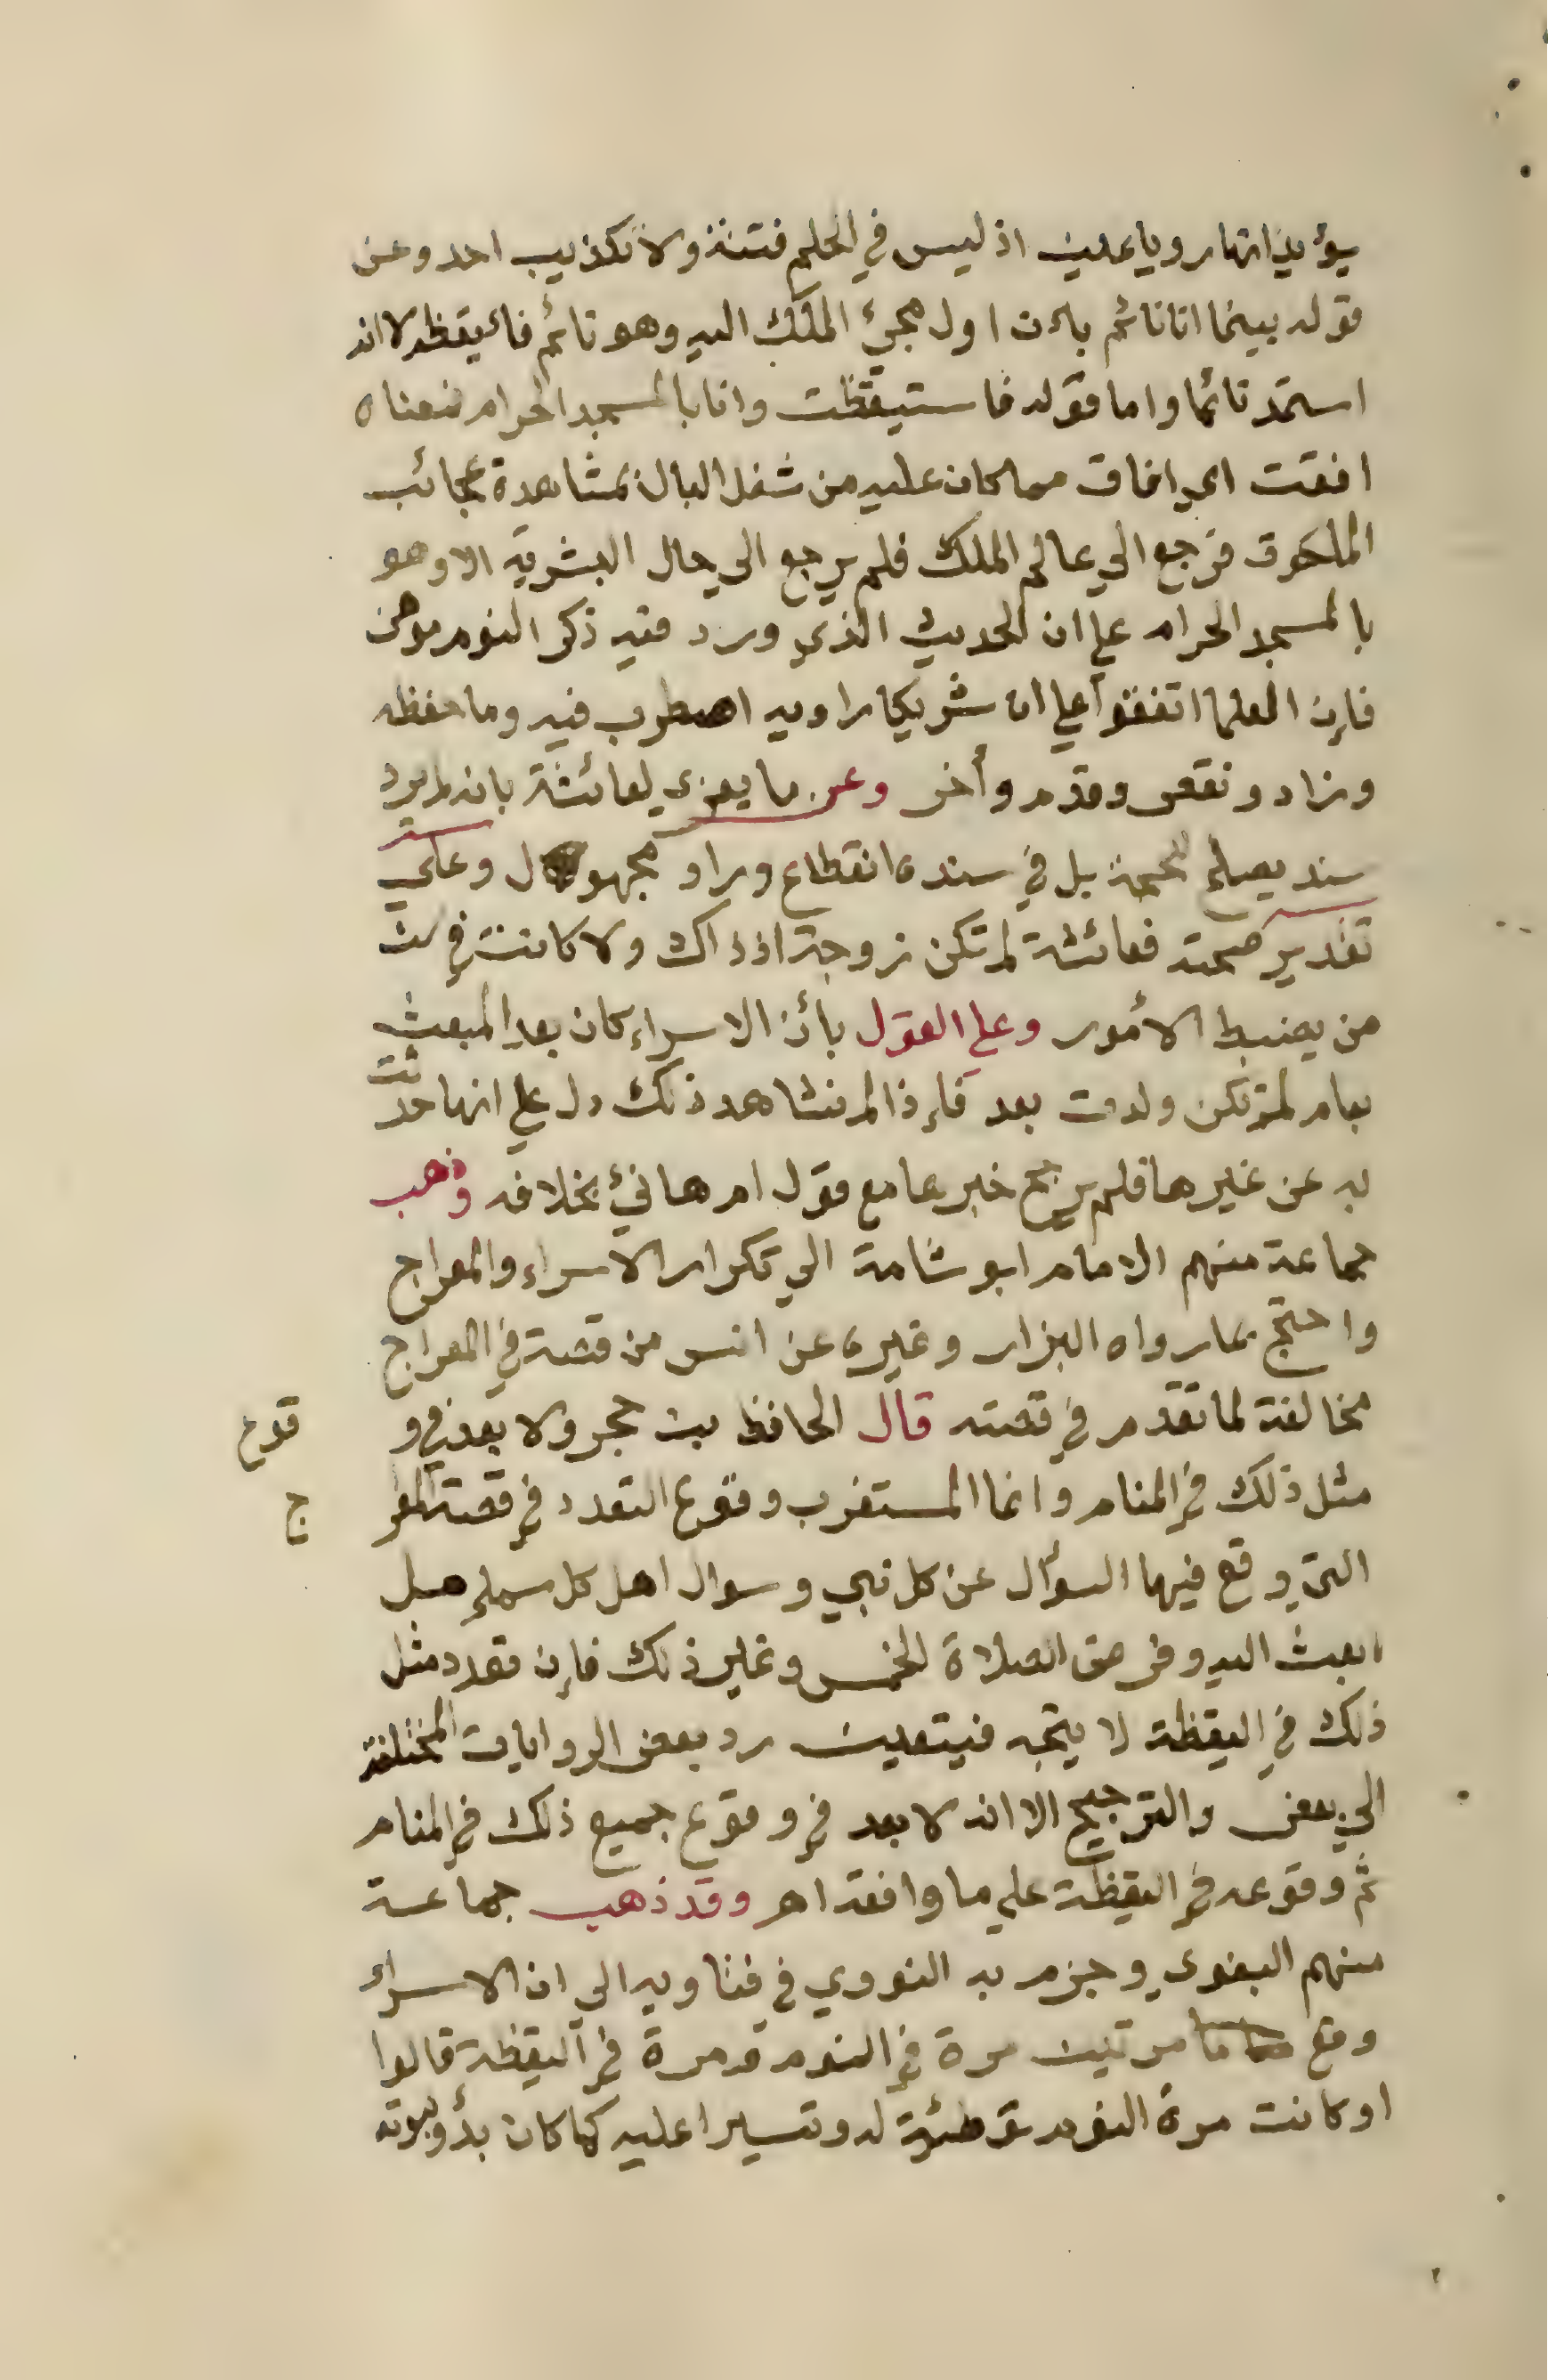 يؤيد انها رويا عين اذ ليس في الحلم فتنة ولا تكذيب احد وعن
قوله بينما انا نائم بان اول مجئ الملك اليه وهو نائم فايقظه لا انه
استمر نائما واما قوله فاستيقظت وانا بالمسجد الحرام فمعناه
افقت اي افاق مما كان عليه من شغل البال بمشاهدة عجائب
الملكوت فرجع الي عالم الملك فلم يرجع الي حال البشرية الا وهو
بالمسجد الحرام علي ان الحديث الذي ورد فيه ذكر النوم موهن
فإن العلما اتفقوا علي ان شريكا راويه اضطرب فيه وما حفظه
وزاد ونقص وقدم وأخر وعن ما يعزى لعائشة بانه لم يرد
بسند يصلح للحجة بل في سنده انقطاع وراو مجهول وعلي
تقدير صحته فعائشة لم تكن زوجة اذ ذاك ولا كانت في سن
من يضبط الأمور وعلي القول بأن الاسراء كان بعد المبعث
بعام لم تكن ولدت بعد فإذا لم تشاهد ذلك دل علي انها حدثت
به عن غيرها فلم يرجح خبرها مع قول ام هانئ بخلافه وذهب
جماعة منهم الامام ابو شامة الي تكرار الاسراء والمعراج
واحتج بما رواه البزار وغيره عن انس من قصة في المعراج
مخالفة لما تقدم في قصته قال الحافظ بن حجر ولا بعد في وقوع
مثل ذلك في المنام وانما المستغرب وقوع التعدد في قصة المعراج
التي وقع فيها السؤال عن كل نبي وسوال اهل كل سماء هل
ابعث اليه وفرض الصلاة الخمس وغير ذلك فإن تعدد مثل
ذلك في اليقظة لا يتجه فيتعين رد بعض الروايات المختلفة
الي بعض والترجيح الا انه لا بعد في وقوع جميع ذلك في المنام
ثم وقوعه في اليقظة علي ما وافقه اهـ وقد ذهب جماعة
منهم البغوي وجزم به النووي في فتاويه الي ان الاسراء
وقع مرتين مرة في النوم ومرة في اليقظة قالوا
او كانت مرة النوم توطئة له وتيسيرا عليه كما كان بدؤ نبوته